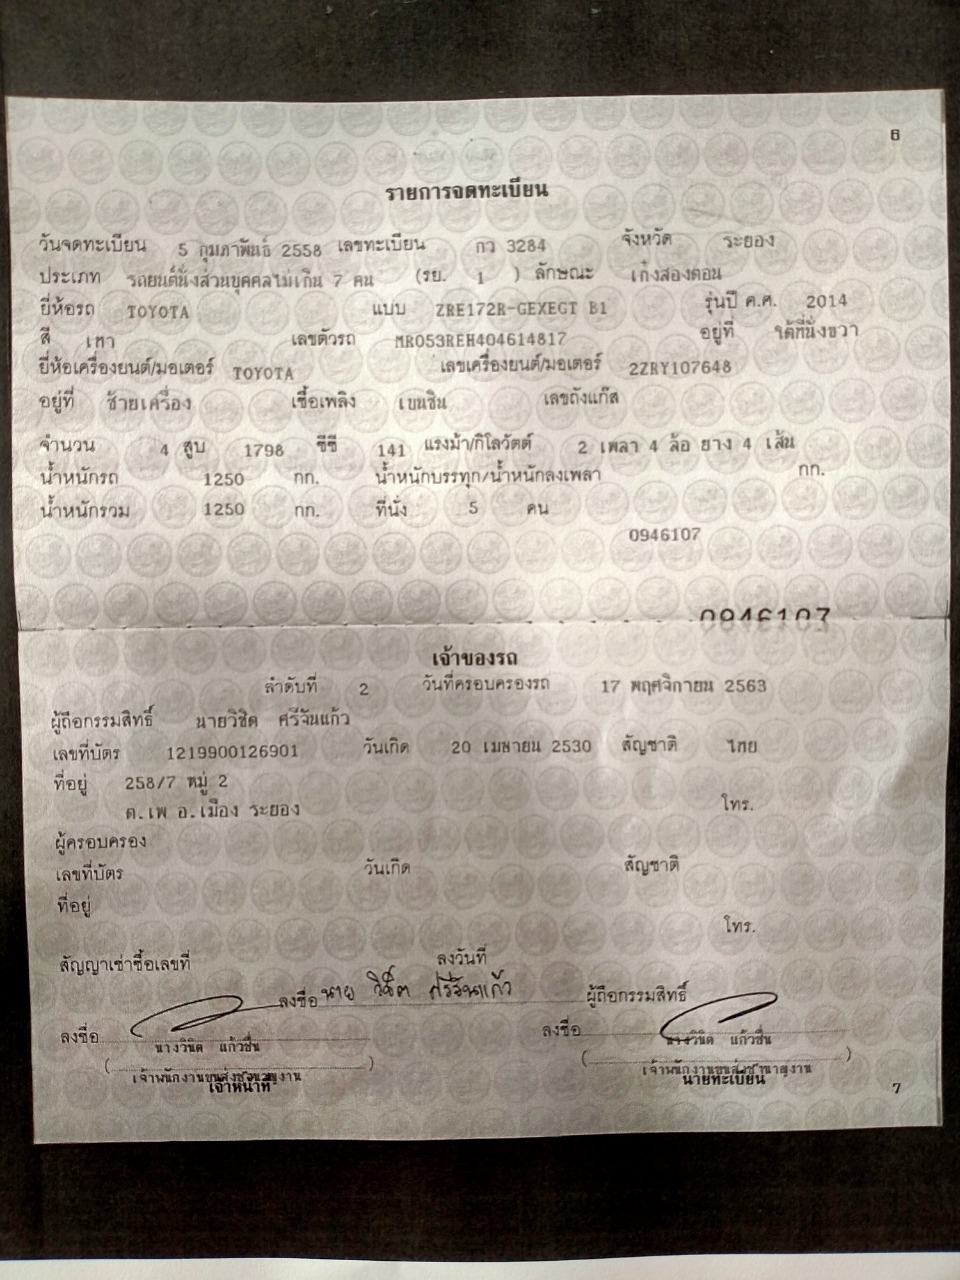 6
รายการจดทะเบียน
วันจดทะเบียน 5 กุมภาพันธ์ 2558 เลขทะเบียน กว 3284 จังหวัด ระยอง
ประเภท รถยนต์นั่งส่วนบุคคลไม่เกิน 7 คน (รย. 1 ) ลักษณะ เก๋งสองตอน
ยี่ห้อรถ TOYOTA แบบ ZRE172R-GEXEGT B1 รุ่นปี ค.ศ. 2014
สี เทา เลขตัวรถ MR053REH404614817 อยู่ที่ ใต้ที่นั่งขวา
ยี่ห้อเครื่องยนต์/มอเตอร์ TOYOTA เลขเครื่องยนต์/มอเตอร์ 2ZRY107648
อยู่ที่ ซ้ายเครื่อง เชื้อเพลิง เบนซิน เลขถังแก๊ส
จำนวน 4 สูบ 1798 ซีซี 141 แรงม้า/กิโลวัตต์ 2 เพลา 4 ล้อ ยาง 4 เส้น
น้ำหนักรถ 1250 กก. น้ำหนักบรรทุก/น้ำหนักลงเพลา กก.
น้ำหนักรวม 1250 กก. ที่นั่ง 5 คน
0946107
0946107
เจ้าของรถ
ลำดับที่ 2 วันที่ครอบครองรถ 17 พฤศจิกายน 2563
ผู้ถือกรรมสิทธิ์ นายวิชิต ศรีจันแก้ว
เลขที่บัตร 1219900126901 วันเกิด 20 เมษายน 2530 สัญชาติ ไทย
ที่อยู่ 258/7 หมู่ 2
ต.เพ อ.เมือง ระยอง โทร.
ผู้ครอบครอง
เลขที่บัตร วันเกิด สัญชาติ
ที่อยู่
โทร.
สัญญาเช่าซื้อเลขที่ ลงวันที่
ลงชื่อ นาย วิชิต ศรีจันแก้ว ผู้ถือกรรมสิทธิ์
ลงชื่อ ลงชื่อ
นางวินิต แก้วชื่น นางวินิต แก้วชื่น
( ) ( )
เจ้าพนักงานขนส่งชำนาญงาน เจ้าพนักงานขนส่งชำนาญงาน
เจ้าหน้าที่ นายทะเบียน
7